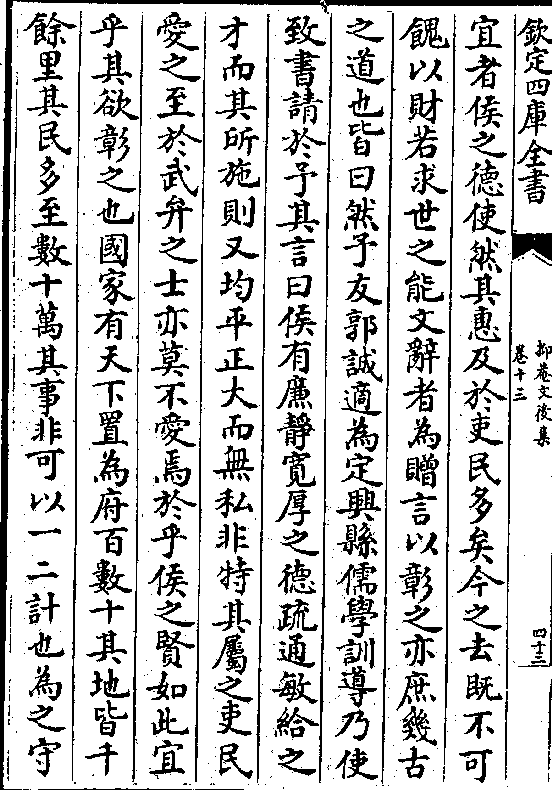 欽定四庫全書
抑菴文後集
卷十三
四十三
宜者侯之德使然其惠及於吏民多矣今之去既不可
餽以財若求世之能文辭者為贈言以彰之亦庶幾古
之道也皆曰然予友郭誠適為定興縣儒學訓導乃使
致書請於予其言曰侯有廉靜寬厚之德疏通敏給之
才而其所施則又均平正大而無私非特其屬之吏民
愛之至於武弁之士亦莫不愛焉於乎侯之賢如此宜
乎其欲彰之也國家有天下置為府百數十其地皆千
餘里其民多至數十萬其事非可以一二計也為之守